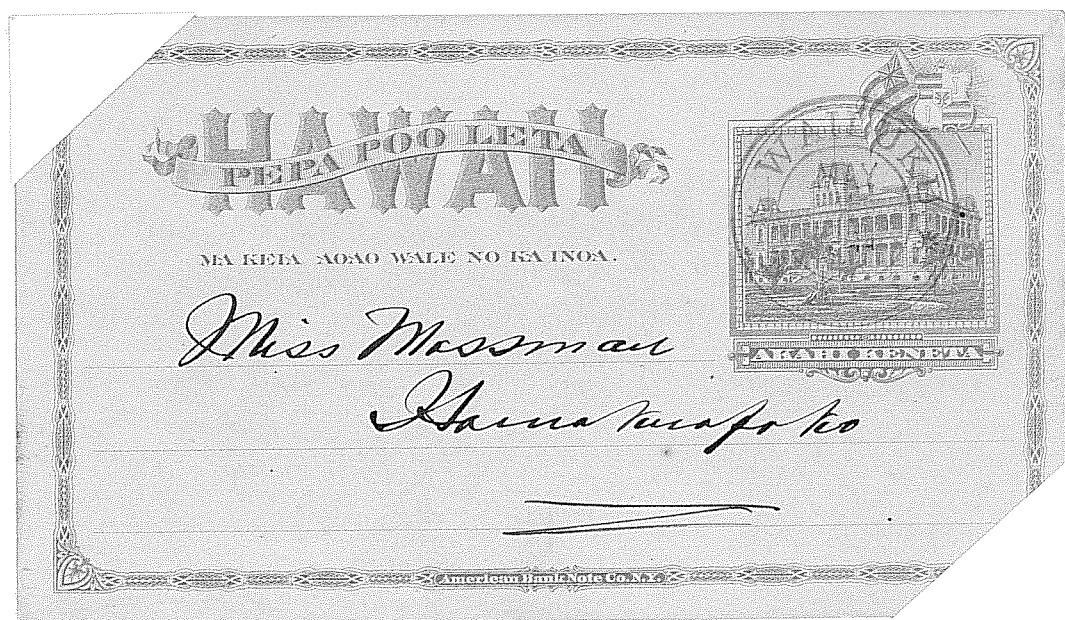 HAWAII
PEPA POO LETA
MA KEIA AOAO WALE NO KA INOA.
WAILUKU
AKAHI KENETA
Miss Mossman
Hamakuapoko
American Bank Note Co. N.Y.